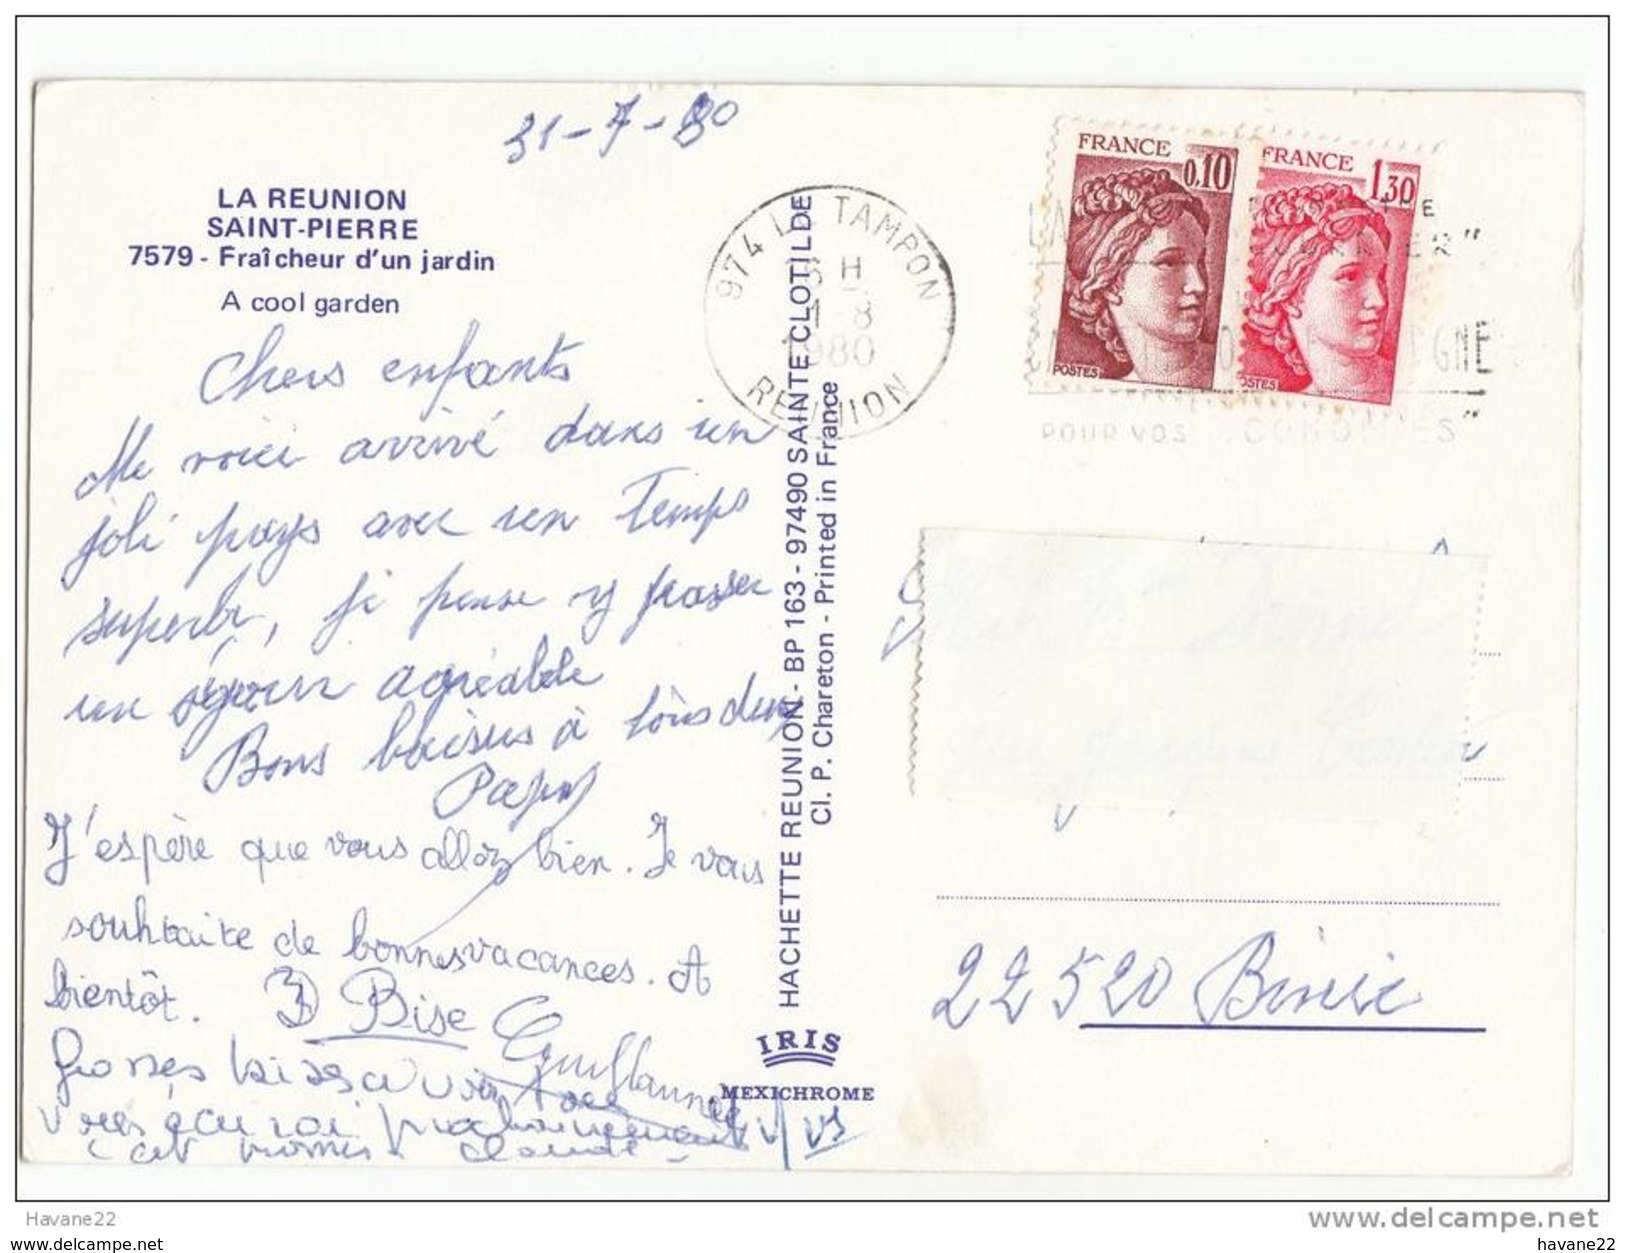 31-7-80
LA REUNION
SAINT-PIERRE
7579 - Fraîcheur d'un jardin
A cool garden
Chers enfants
Me voici arrivé dans un
joli pays avec un temps
superbe, je pense y passer
un séjour agréable
Bons baisers à tous deux
Papy
J'espère que vous allez bien. Je vous
souhtaite de bonnes vacances. A
bientôt. Bise Guillaume
Grosses bises a
Vous écrirai prochainement
c'est promis Claude
HACHETTE REUNION - BP 163 - 97490 SAINTE CLOTILDE
Cl. P. Chareton - Printed in France
IRIS
MEXICHROME
974 LE TAMPON
16 H
1-8
1980
REUNION
FRANCE
0,10
POSTES
FRANCE
1,30
POSTES
POUR VOS ECONOMIES"
22520 Binic
Havane22
www.delcampe.net
www.delcampe.net
havane22